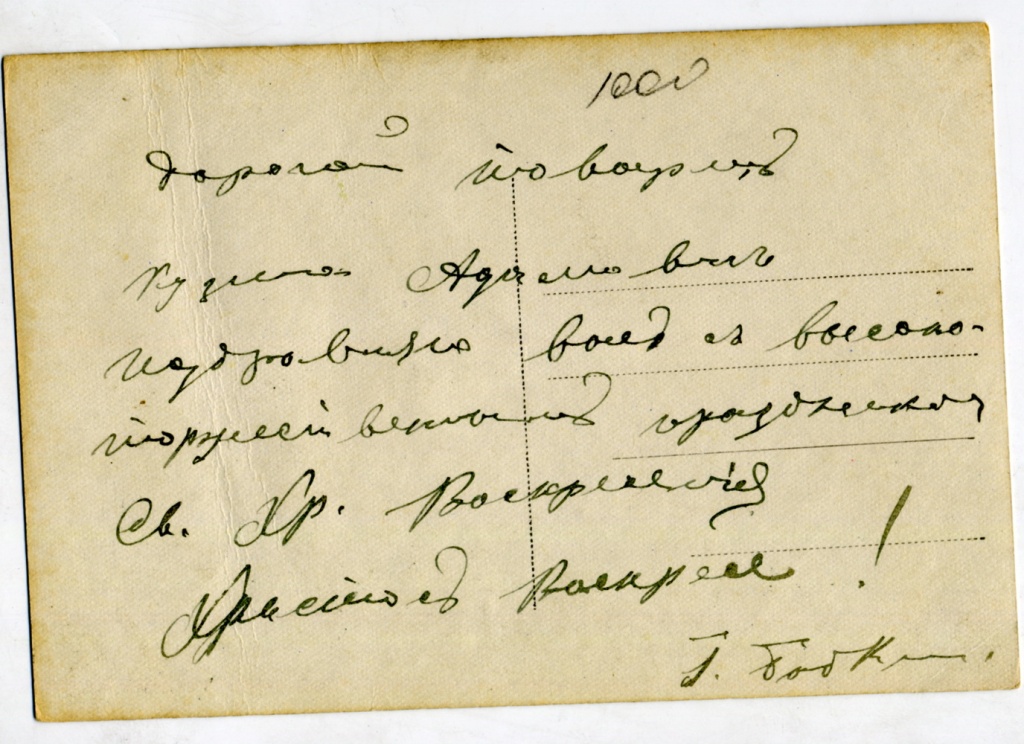 1000
Дорогой товарищъ
Кузьма Адамовичъ
поздравляю васъ съ высоко-
торжественнымъ праздникомъ
Св. Хр. Воскресенія
Христосъ Воскресе!
Г.